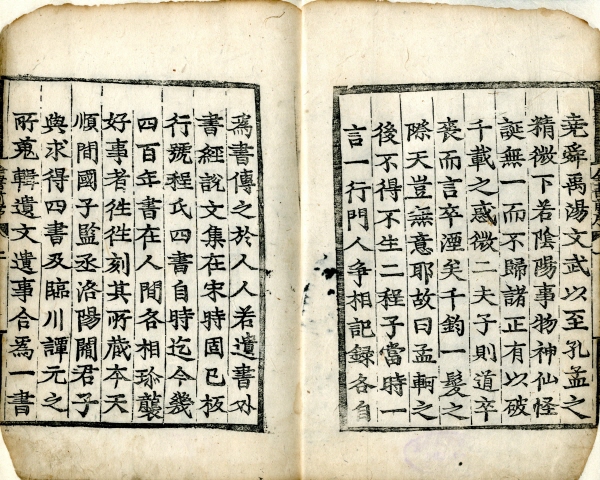 堯舜禹湯文武以至孔孟之
精微下若陰陽事物神仙怪
誕無一而不歸諸正有以破
千載之惑微二夫子則道卒
喪而言卒湮矣千鈞一髮之
際天豈無意耶故曰孟軻之
後不得不生二程子當時一
言一行門人爭相記録各自
爲書傳之於人人若遺書外
書經說文集在宋時固已板
行號程氏四書自時迄今幾
四百年書在人間各相珎襲
好事者徃徃刻其所蔵夲天
順間國子監丞洛陽閻君子
與求得四書及臨川譚元之
所蒐輯遺文遺事合爲一書